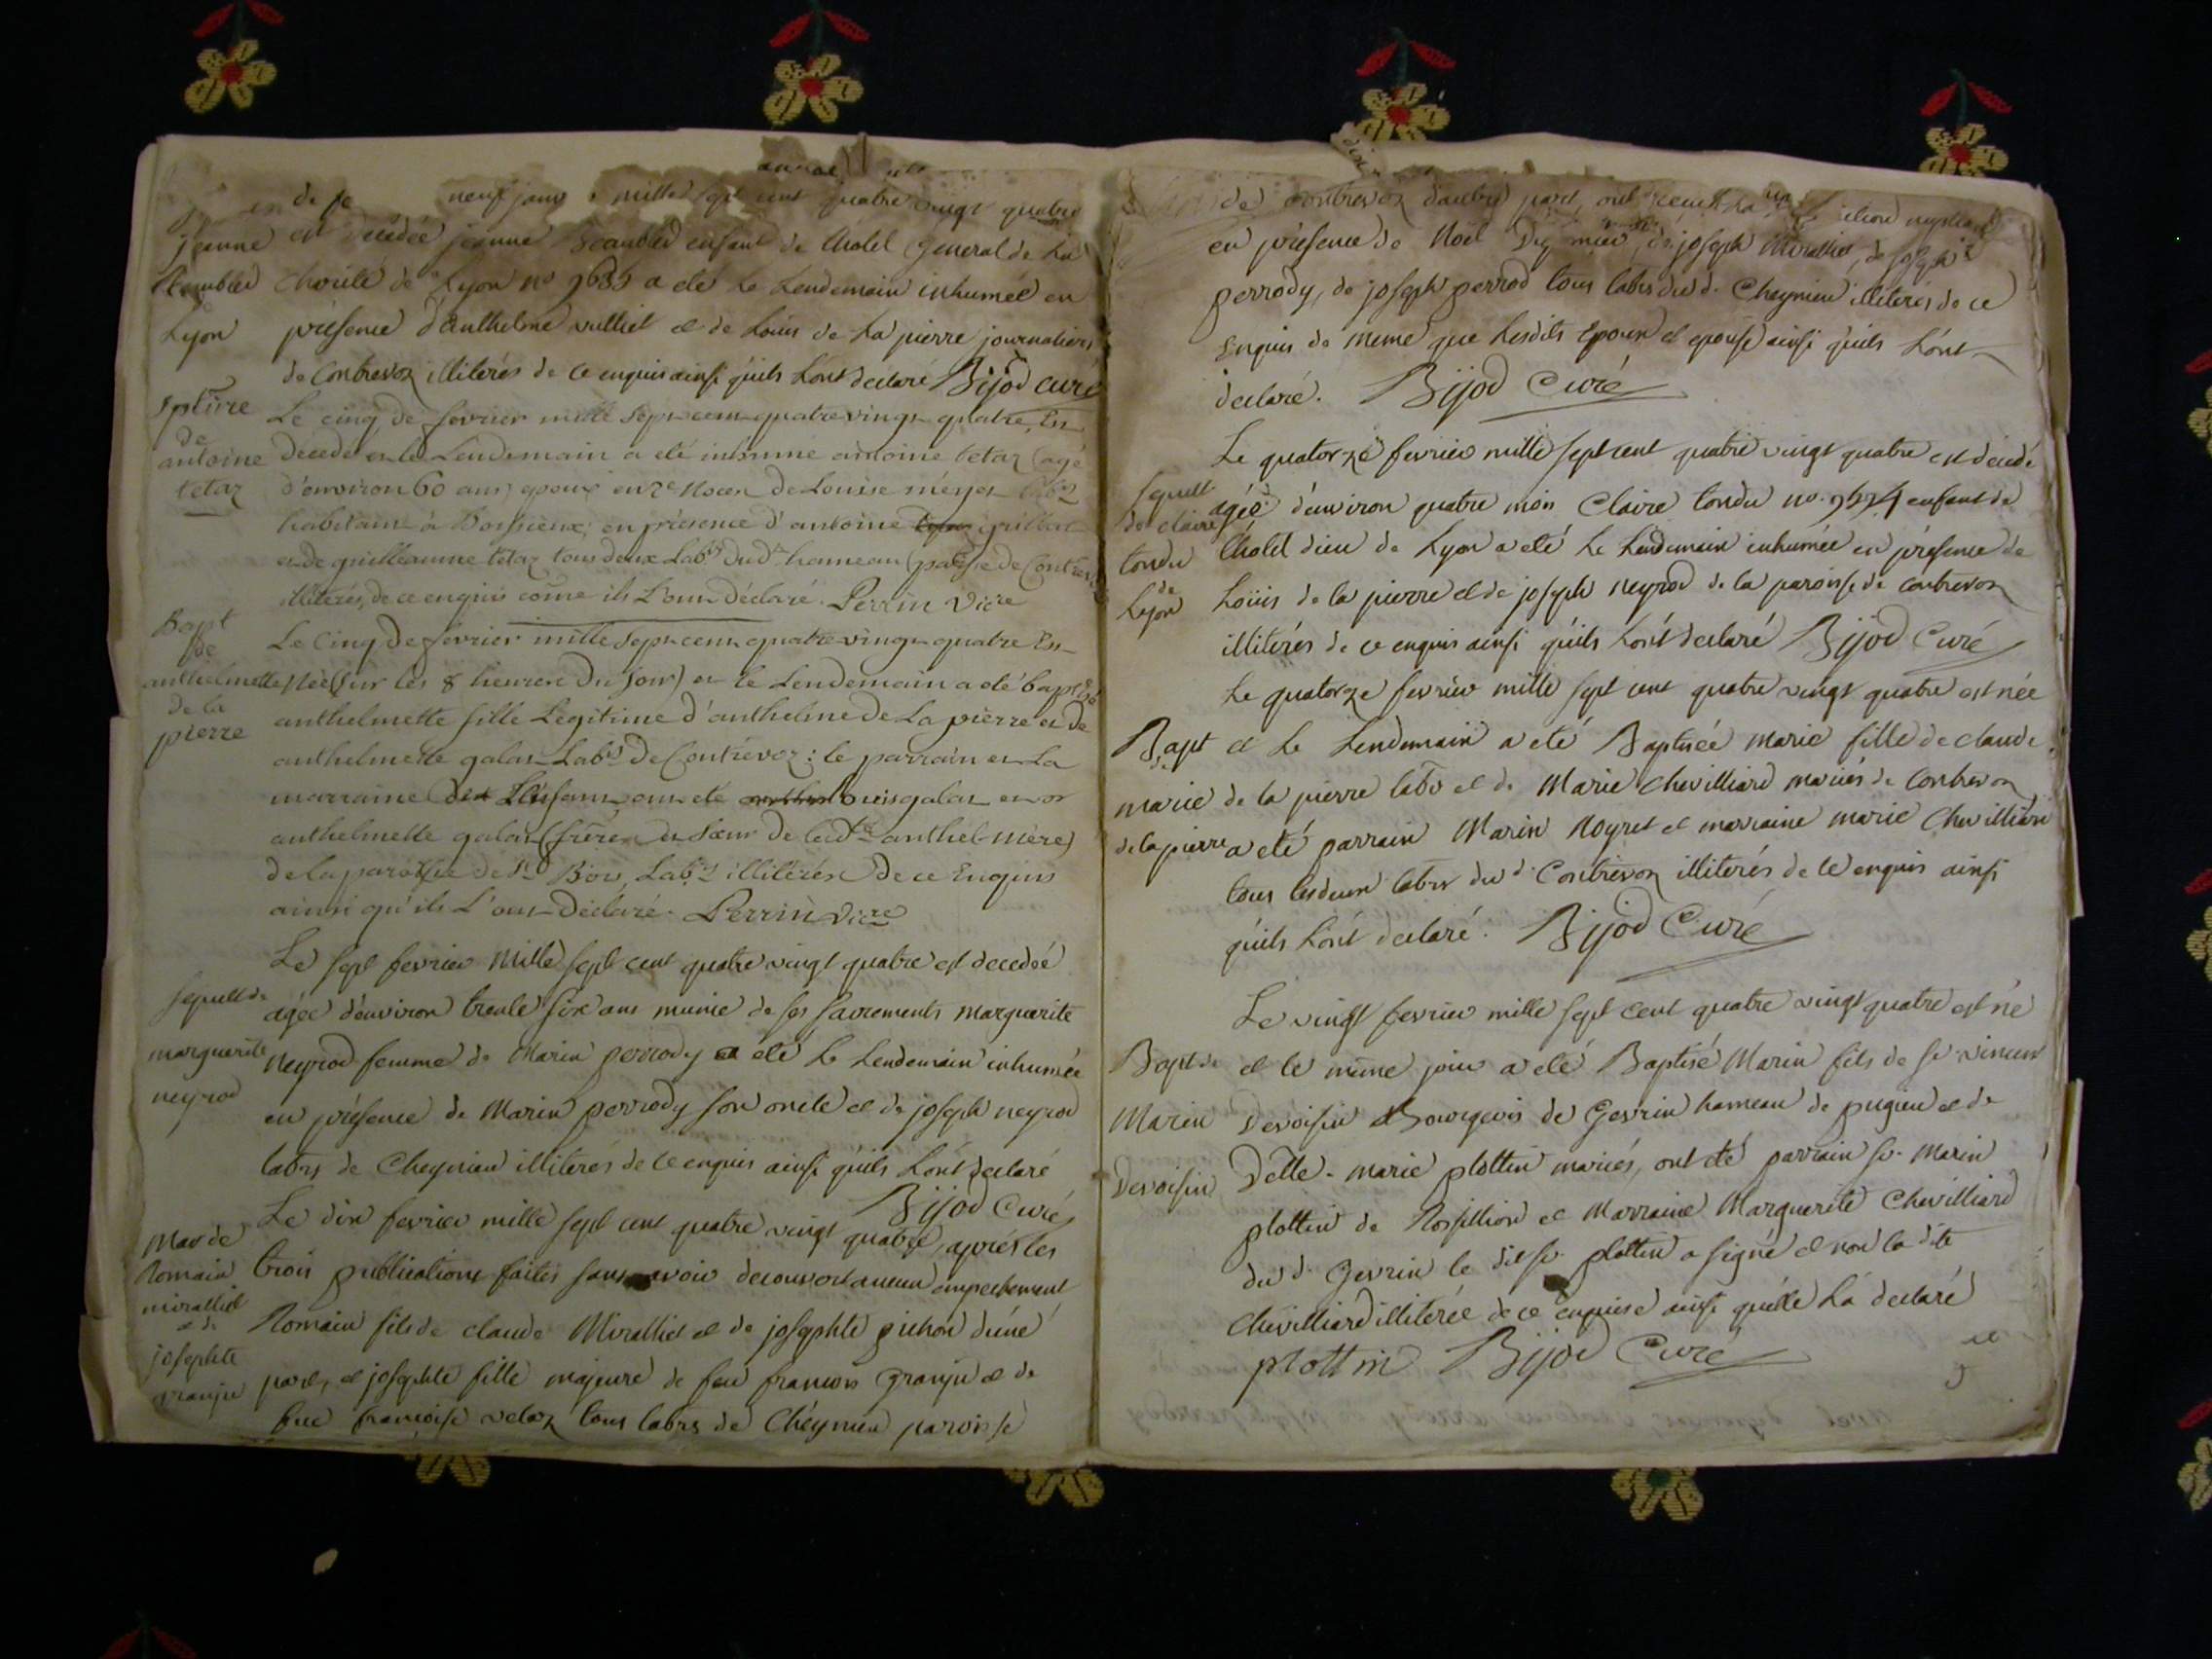 neuf janv mille sept cent quatre vingt quatre
jeanne
Lyon
est décédée jeanne enfant de Lhotel General de La
Charité de Lyon no 9685 a eté Le Lendemain inhumée en
présence d'anthelme vulliet et de Louis de La pierre journaliers
de Contrevoz illiterés de ce enquis ainsi quils Lont declaré Bijod curé
Spltre
de
antoine
tetaz
Le cinq de fevrier mille sept cent quatre vingt quatre Est
Décédé et le Lendemain a eté inhumé antoine tetaz (agé
d'environ 60 ans) epoux en 2e Noces de Louise
habitant à en présence d'antoine
et de guilleaume tetaz tous deux Labrs Dud hameau
illiterés, de ce enquis come ils L'ont déclaré. Perrin vicre
Bapt
de
anthelmette
de la
pierre
Le Cinq De fevrier mille sept cent quatre vingt quatre Est
Née (sur les 8 heures Du soir) et le Lendemain a eté baptisée
anthelmette fille Legitime d'anthelme De La pierre et de
anthelmette galat Labrs De Contrevoz : le parrain et La
marraine ont eté galat et
anthelmette galat (frère et sœur de
de la paroisse de Labrs illiterés De ce Enquis
ainsi qu'ils L'ont Déclaré. Perrin vicre
sepult de
marguerite
neyrod
Le sept fevrier Mille sept cent quatre vingt quatre est decedée
agée d'environ trente six ans munie de ses sacrements marguerite
Neyrod femme de Marin perrody a eté Le Lendemain inhumée
en présence de Marin perrody son oncle et de joseph neyrod
labrs de Cheynieu illiterés de ce enquis ainsi quils Lont declaré
Bijod Curé
Mar de
Romain
miralliet
et de
josephte
granju
Le dix fevrier mille sept cent quatre vingt quatre, après les
trois publications faites sans avoir decouvert aucun empechement
Romain fils de claude Miralliet et de josephte pichon d'une
part, et josephte fille majeure de feu francois Granju et de
françoise velaz tous labrs de Cheynieu paroisse
de Contrevoz d'autre part, ont recu La
en présence de Noel de joseph Miralliet, de joseph
perrody, de joseph perrod tous labrs du d. Cheynieu illiterés de ce
enquis de meme que Lesdits Epoux et epouse ainsi quils Lont
declaré. Bijod Curé
sepult
de claire
tondu
de
Lyon
Le quatorze fevrier mille sept cent quatre vingt quatre est décédé
agée d'environ quatre mois Claire tondu no. enfant de
Lhotel dieu de Lyon a eté Le Lendemain inhumée en présence de
Loüis de la pierre et de joseph neyrod de la paroisse de contrevoz
illiterés de ce enquis ainsi quils Lont declaré Bijod Curé
Bapt
de
marie
de la pierre
Le quatorze fevrier mille sept cent quatre vingt quatre est née
et Le Lendemain a eté Baptisée marie fille de claude
de la pierre labr et de Marie Chevilliard mariés de Contrevoz
a eté parrain Marin Noyret et marraine marie Chevilliard
tous lesdeux labrs du d. Contrevoz illiterés de ce enquis ainsi
quils Lont declaré. Bijod Curé
Bapt de
Marin
Devoisin
Le vingt fevrier mille sept cent quatre vingt quatre est né
et le même jour a eté Baptisé Marin fils de sr. vincent
Devoisin Bourgeois de Gevrin hameau de pugieu et de
Delle. marie plottin mariés, ont eté parrain sr. Marin
plottin de Rossillion et Marraine Marguerite Chevilliard
du d. Gevrin le dit sr. plottin a signé et non la dite
Chevilliard illiterée de ce enquise ainsi quelle La declaré
plottin Bijod Curé